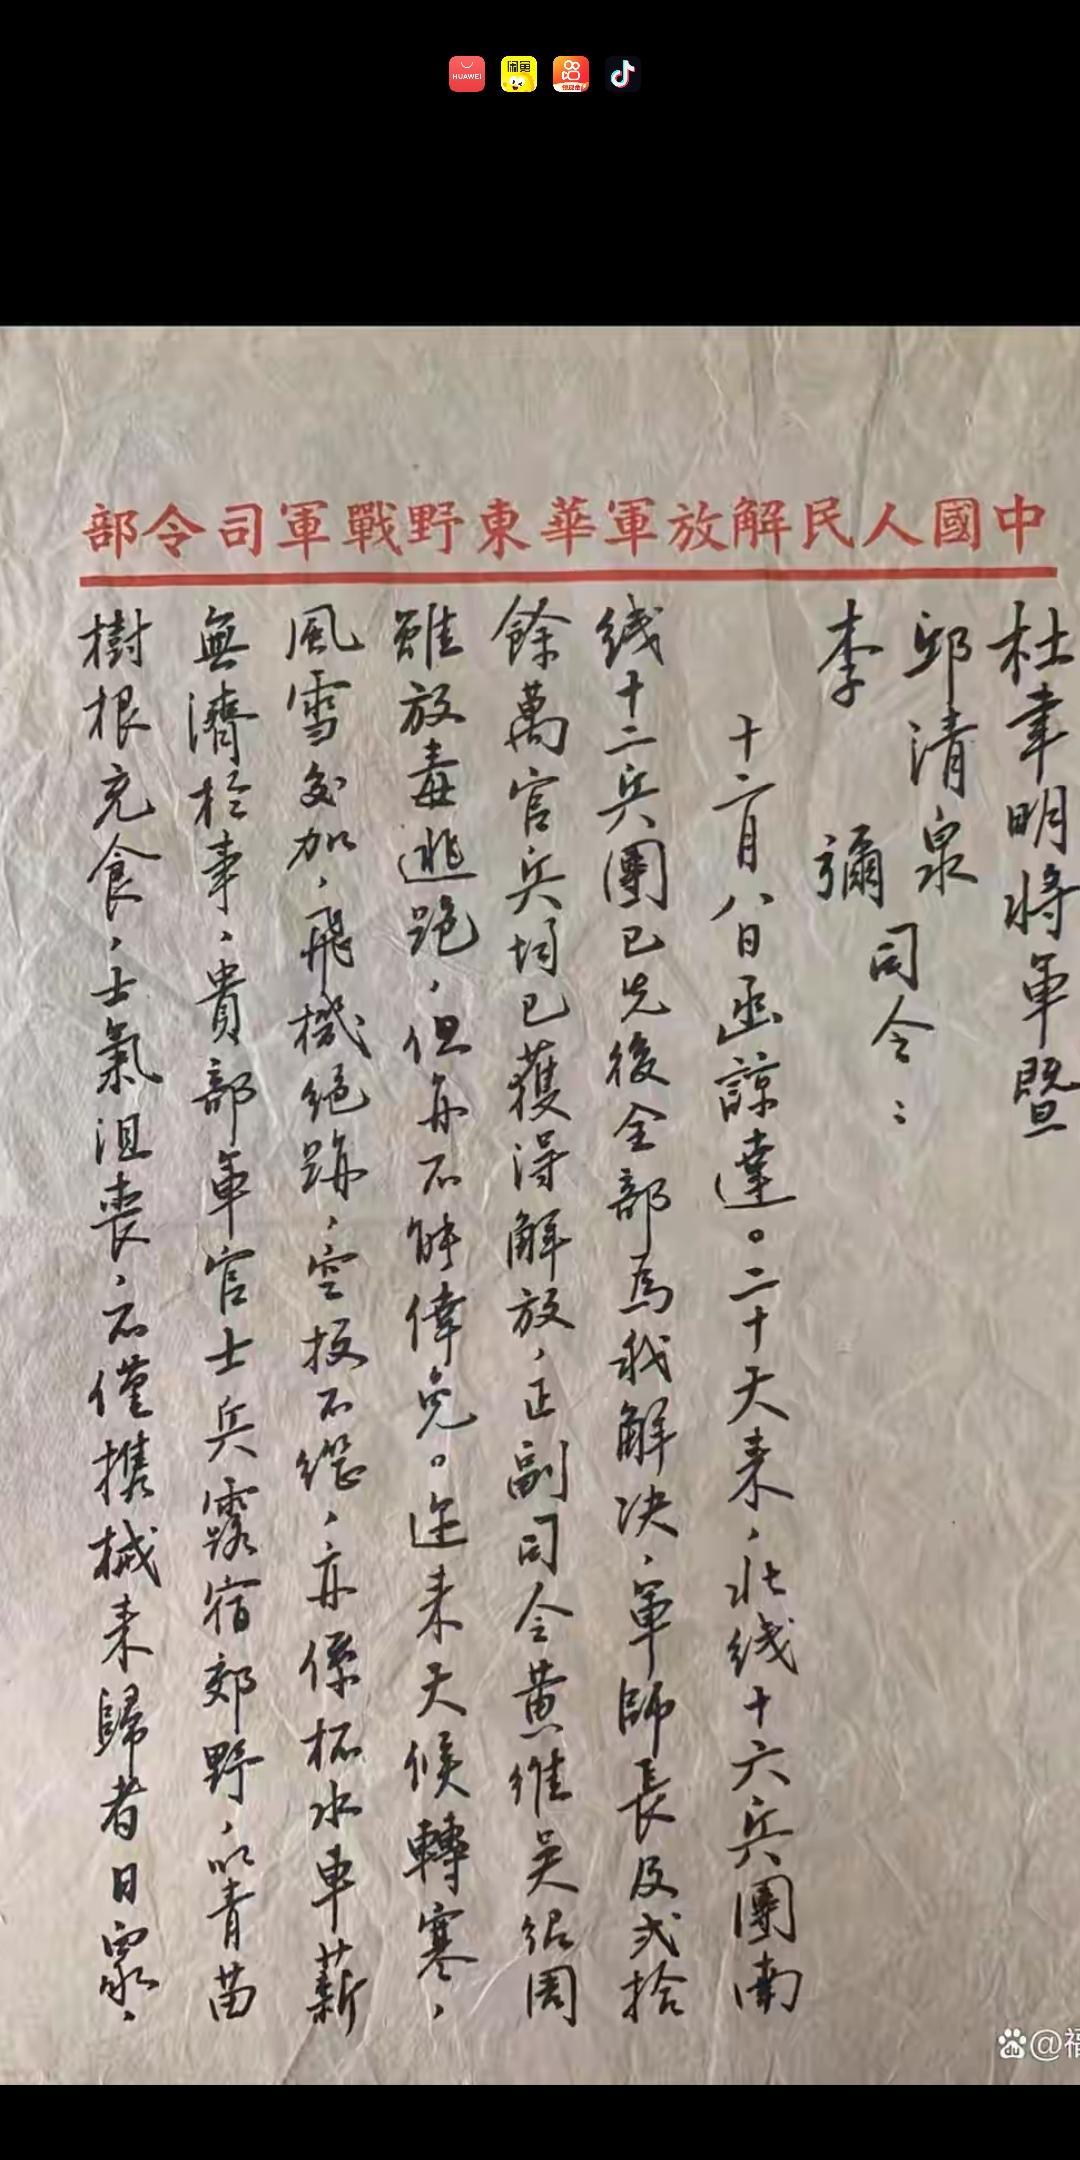 HUAWEI
闲鱼
部令司軍戰野東華軍放解民人國中
杜聿明將軍暨
邱清泉
李彌
司令：
十二月八日函諒達。二十天来，北线十六兵團南
线十二兵團已先後全部為我解决，軍師長及弍拾
餘萬官兵均已獲得解放，正副司令黄维吴绍周
雖放毒逃跑，但毎不能倖免。近来天候轉寒，
風雪交加，飛機绝跡，空投不繼，亦係杯水車薪
無濟於事，貴部軍官士兵露宿郊野，以青苗
樹根充食，士氣沮喪，不僅携械来歸者日衆，
du @福